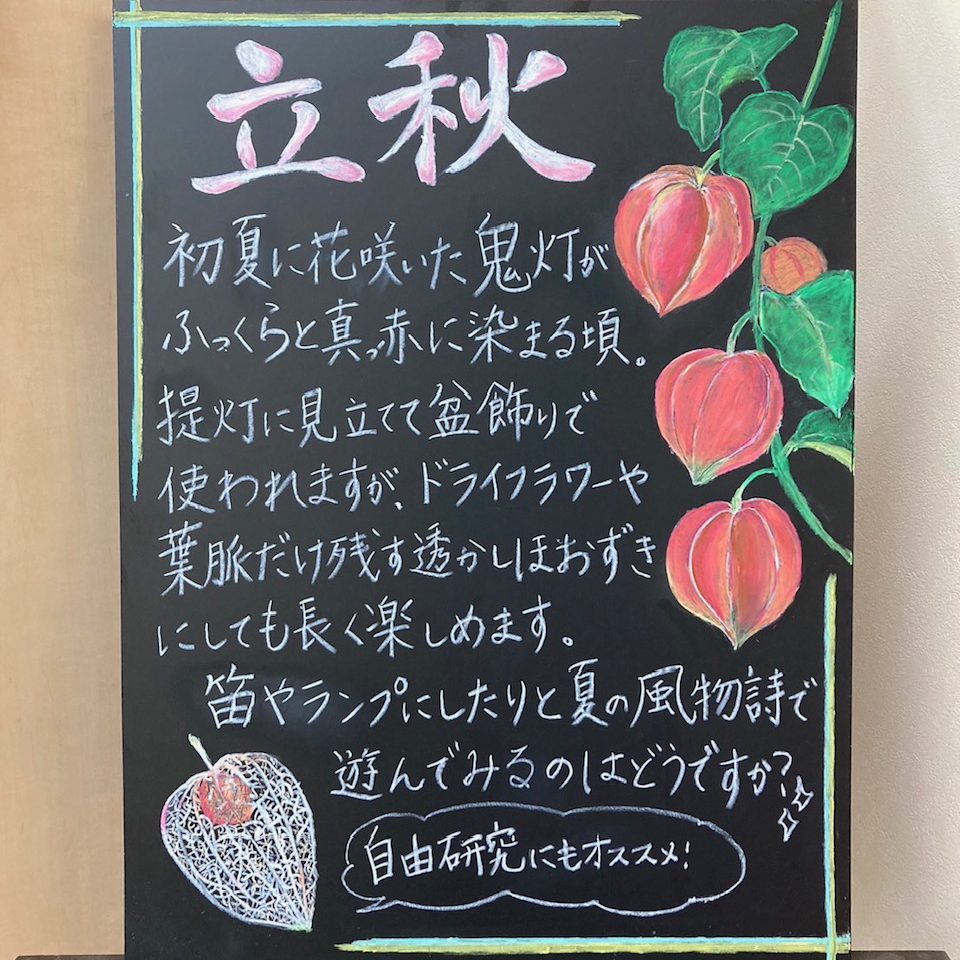 立秋
初夏に花咲いた鬼灯が
ふっくらと真っ赤に染まる頃。
提灯に見立てて盆飾りで
使われますが、ドライフラワーや
葉脈だけ残す透かしほおずき
にしても長く楽しめます。
笛やランプにしたりと夏の風物詩で
遊んでみるのはどうですか?
自由研究にもオススメ!